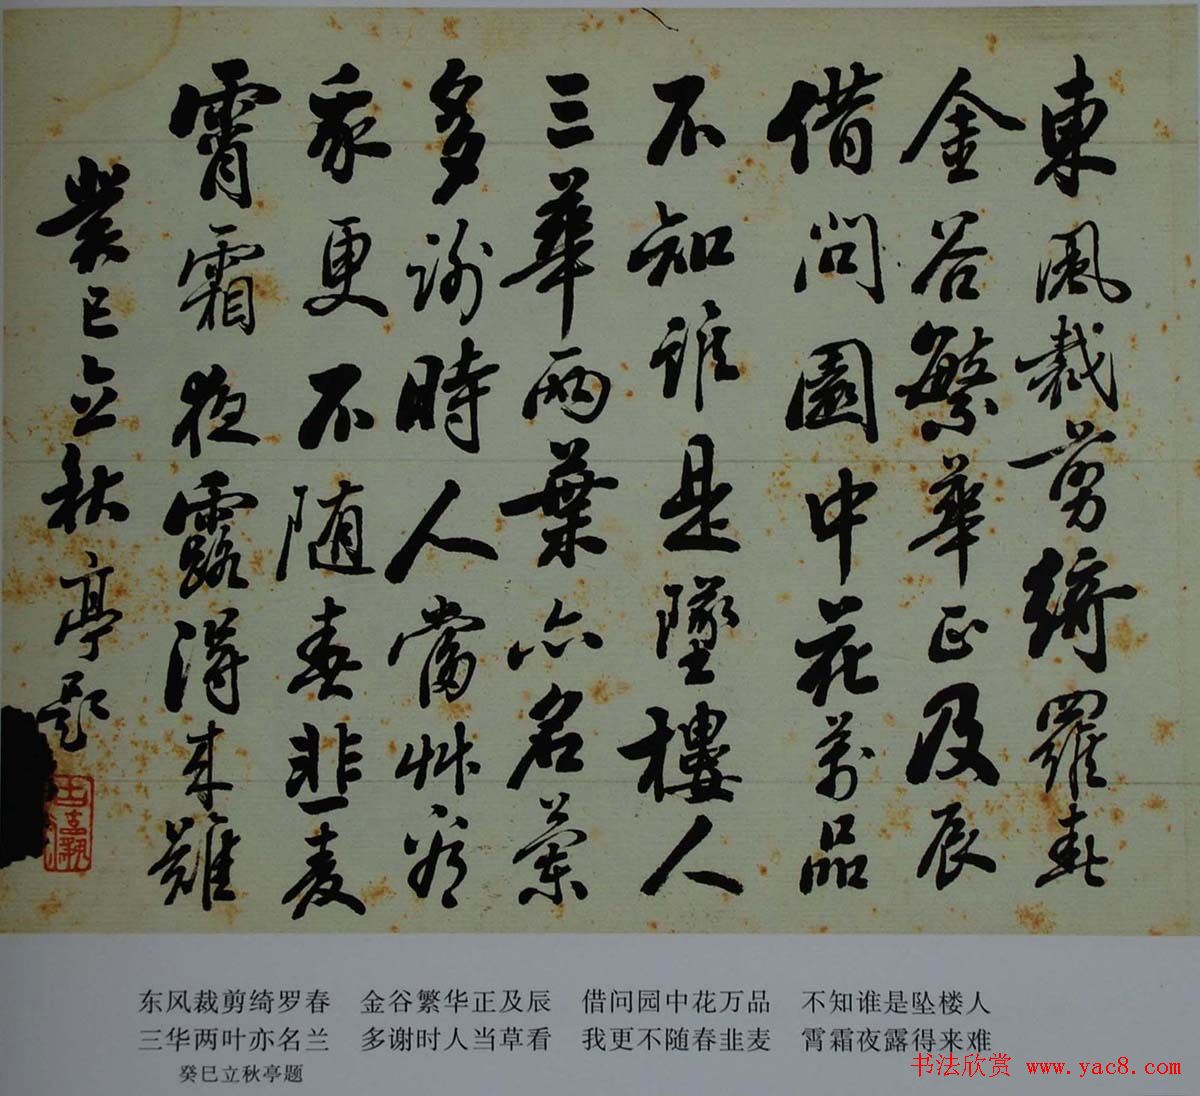 東風裁剪綺羅春
金谷繁華正及辰
借問園中花萬品
不知誰是墜樓人
三華兩葉亦名蘭
多謝時人當艸看
我更不随春韭麦
霄霜夜露得来難
癸巳立秋亭题
东风裁剪绮罗春 金谷繁华正及辰 借问园中花万品 不知谁是坠楼人
三华两叶亦名兰 多谢时人当草看 我更不随春韭麦 霄霜夜露得来难
癸巳立秋亭题
书法欣赏 www.yac8.com